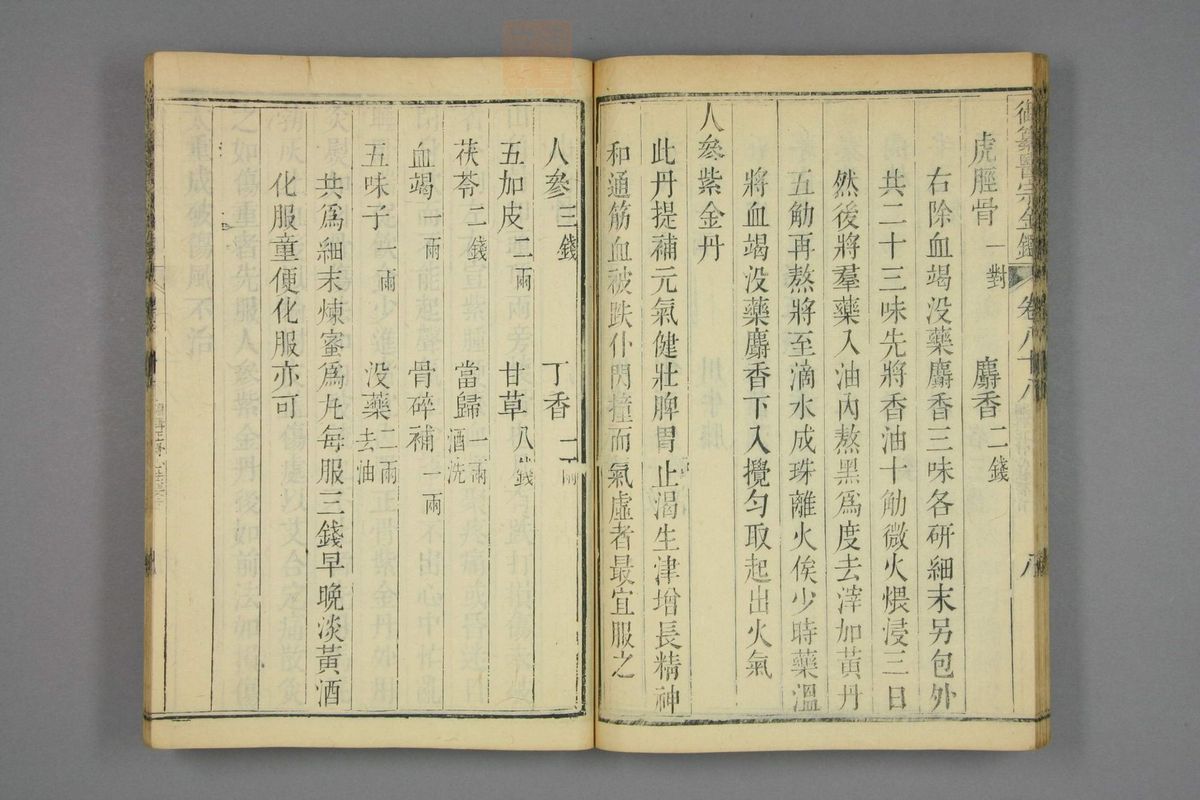 御纂醫宗金鑑 卷八十八 八
虎脛骨一對 麝香二錢
右除血竭没藥麝香三味各研細末另包外
共二十三味先將香油十觔微火煨浸三日
然後將羣藥入油內熬黑爲度去滓加黃丹
五觔再熬將至滴水成珠離火俟少時藥溫
將血竭没藥麝香下入攪勻取起出火氣
人參紫金丹
此丹提補元氣健壯脾胃止渴生津增長精神
和通筋血被跌仆閃撞而氣虛者最宜服之
人參三錢 丁香一兩
五加皮二兩 甘草八錢
茯苓二錢 當歸一兩酒洗
血竭一兩 骨碎補一兩
五味子一兩 没藥二兩去油
共爲細末煉蜜爲丸每服三錢早晚淡黃酒
化服童便化服亦可